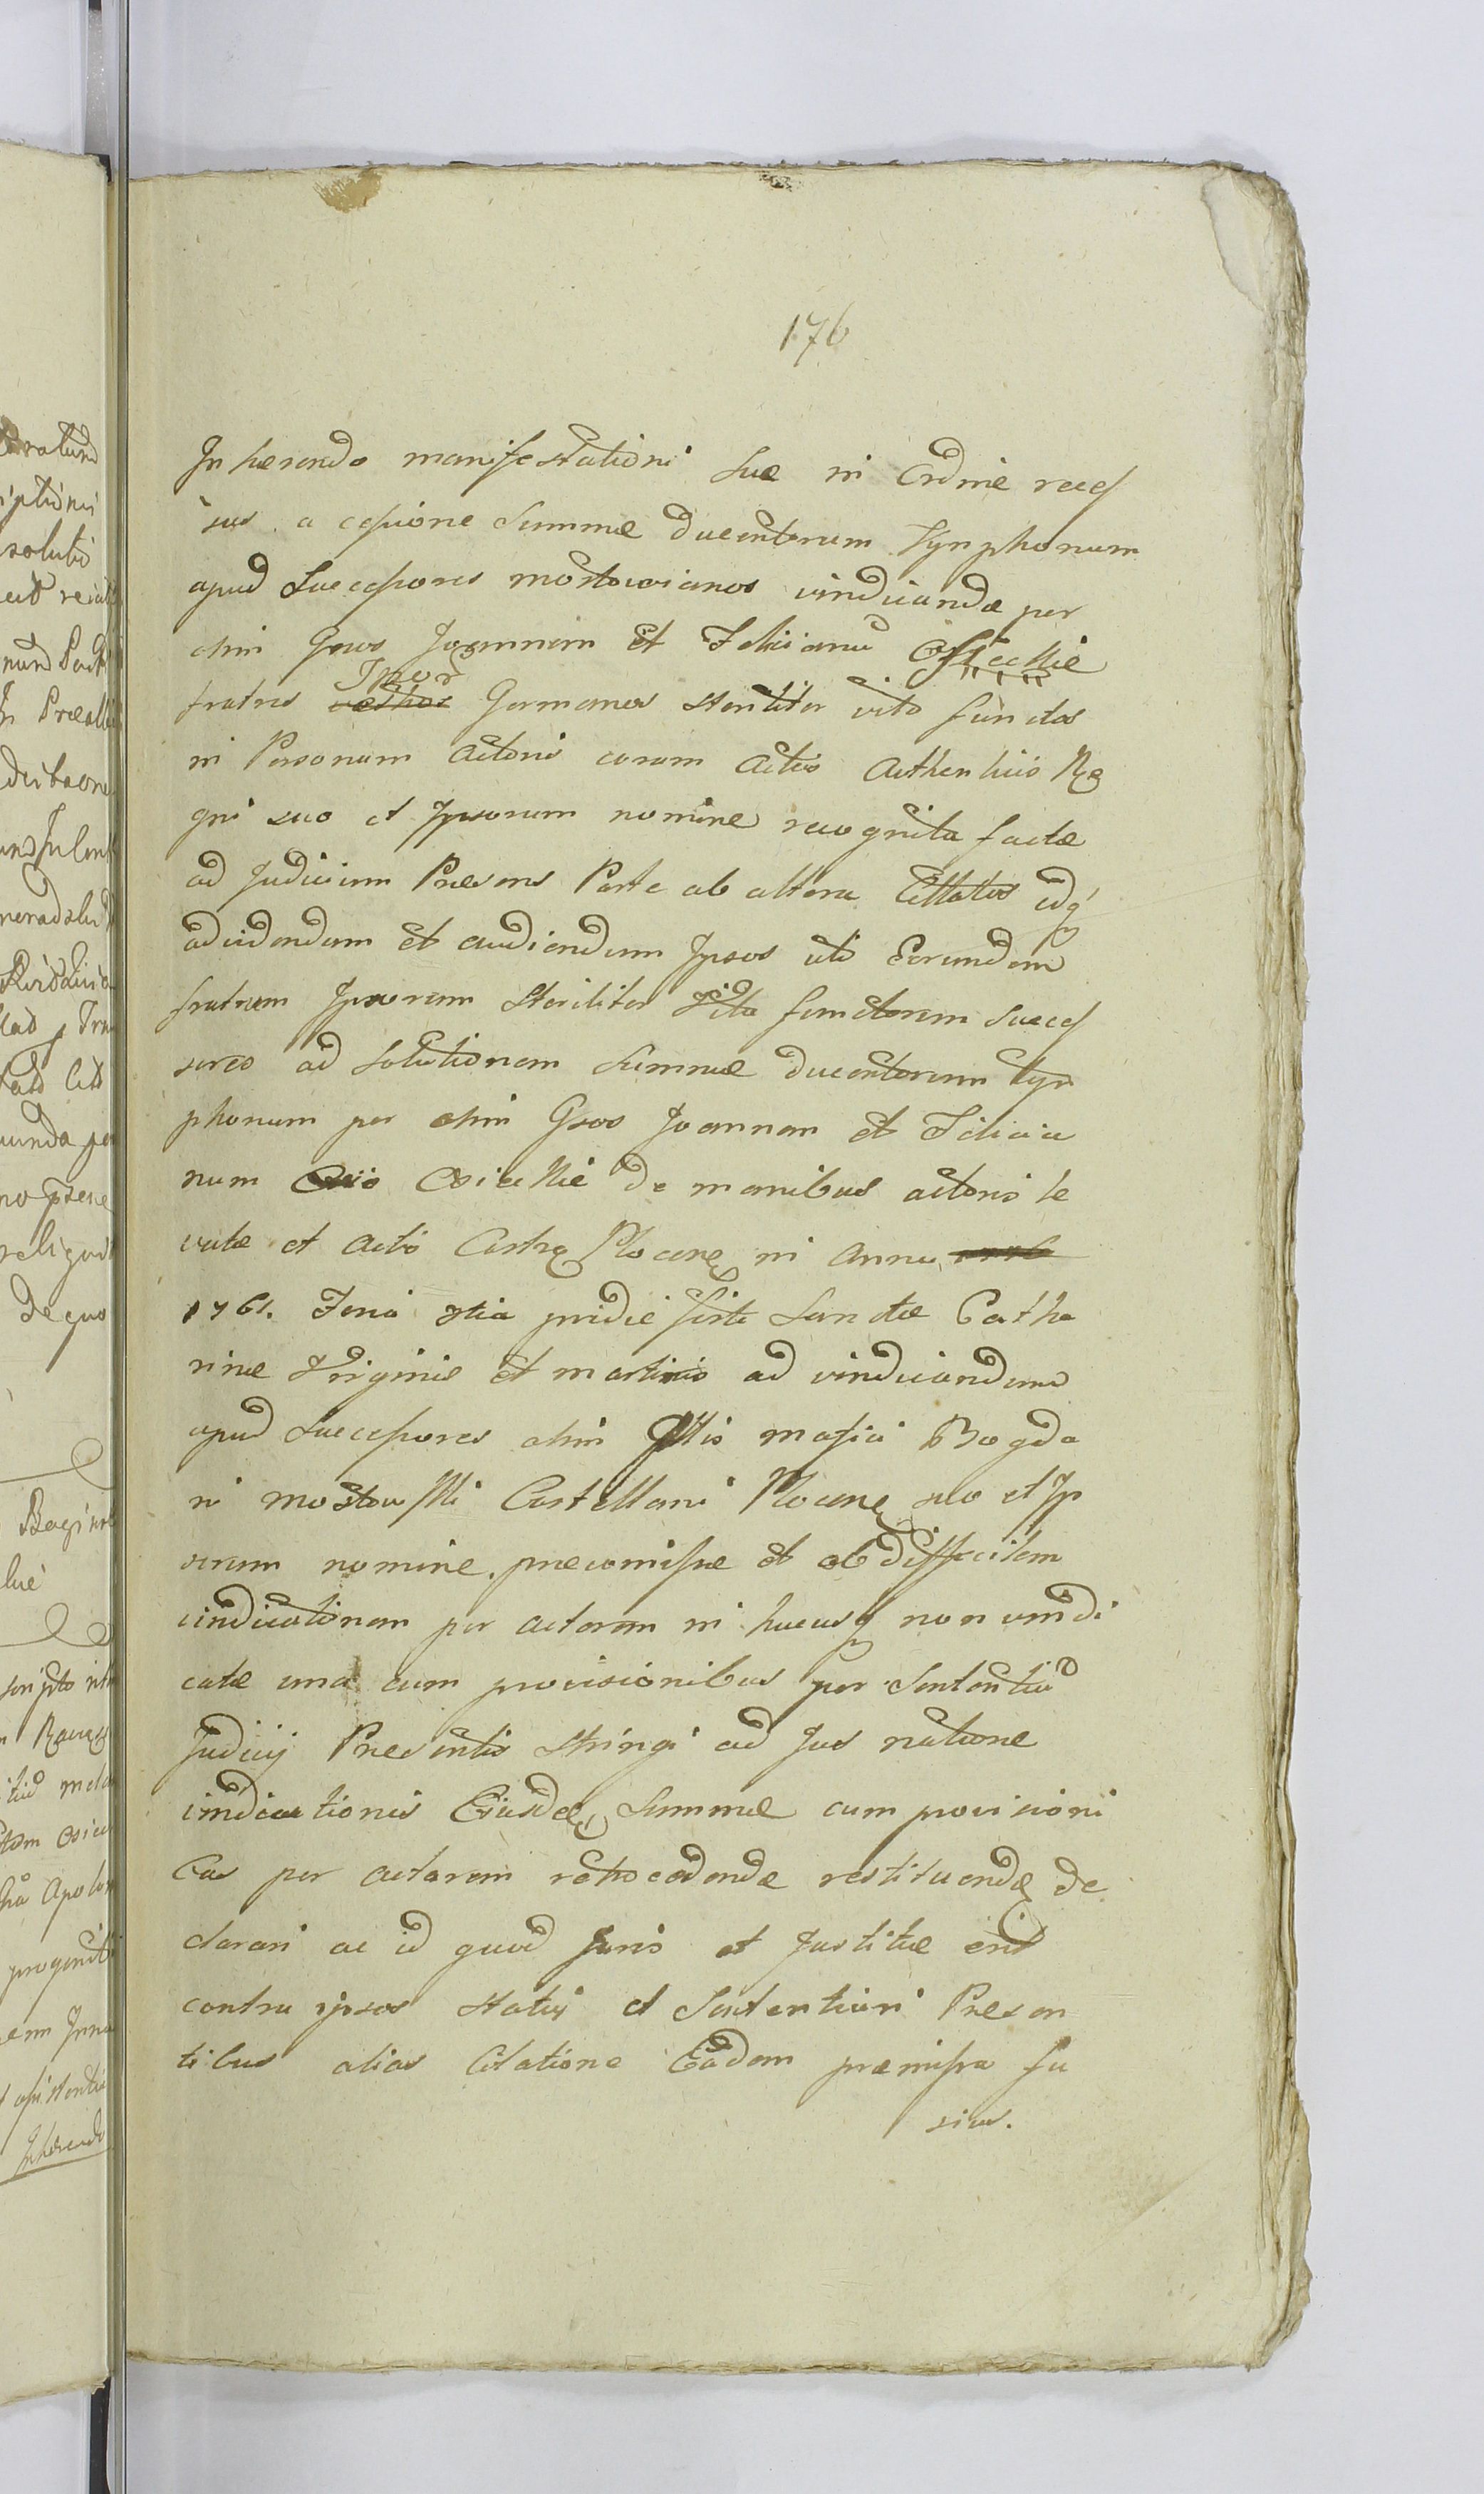 176
Inhærendo manifestationi suæ in Ordine recess
sus a cessione Summæ ducentorum Tynphonum
apud Successores mostovianos vindicandæ per
olim Gsos Joannem et Felicianu Osieckie
fratres Ipsor vestros Germanos steriliter vita functos
in Personam Actoris coram Actis Authenticis Re
gni suo et Ipsorum nomine recognita factæ
ad Judicium Præsens Parte ab altera Cittatos idq
ad videndum et audiendum Ipsos uti Eorundem
fratrum Ipsorum Steriliter Vita functorum Succes
sores ad solutionem Summæ ducentorum Tyn
phonum per olim Gsos Joannem et Felicia
num Osieckie de manibus actoris le
vatæ et Actis Castræ Plocenę in Anno
1761. Feria 3tia pridie festi Sanctæ Catha
rinæ Virginis et martiris ad vindicandum
apud Successores olim Illis Bogda
ni mostowski Castellani Plocenę suo et Ip
sorum nomine præcomissæ et ob difficilem
vindicationem per actorem in hucusq non vindi
catæ una cum provisionibus per Sententiã
Judicij Præsentis stringi ad Jus ratione
vindicationis Eiusdę Summæ cum provisioni
bus per actorem retrocedendæ restituendę de
clarari ac id quod Juris et Justitiæ erit
contra ipsos statui et Sententiari Præsen
tibus alias Citatione Eadem præmissa fu
sius.